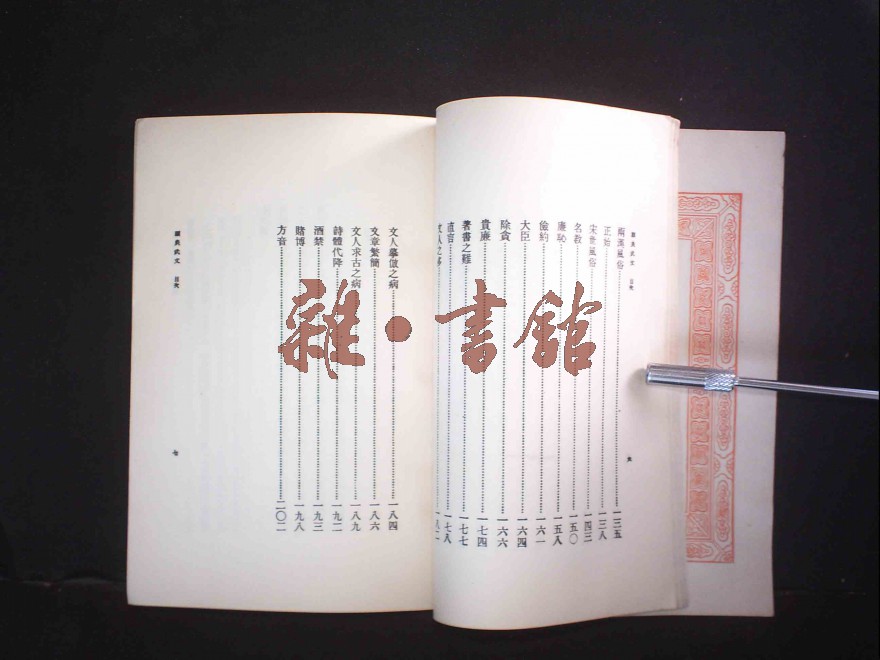 顧炎武文 目次
兩漢風俗……一三五
正始……一三八
宋世風俗……一四三
名教……一五〇
廉恥……一五八
儉約……一六一
大臣……一六四
除貪……一六六
貴廉……一七四
著書之難……一七七
直言……一七八
文人之多……一八二
文人摹倣之病……一八四
文章繁簡……一八六
文人求古之病……一八九
詩體代降……一九二
酒禁……一九三
賭博……一九八
方音……二〇二
顧炎武文 目次
七
雜·書館